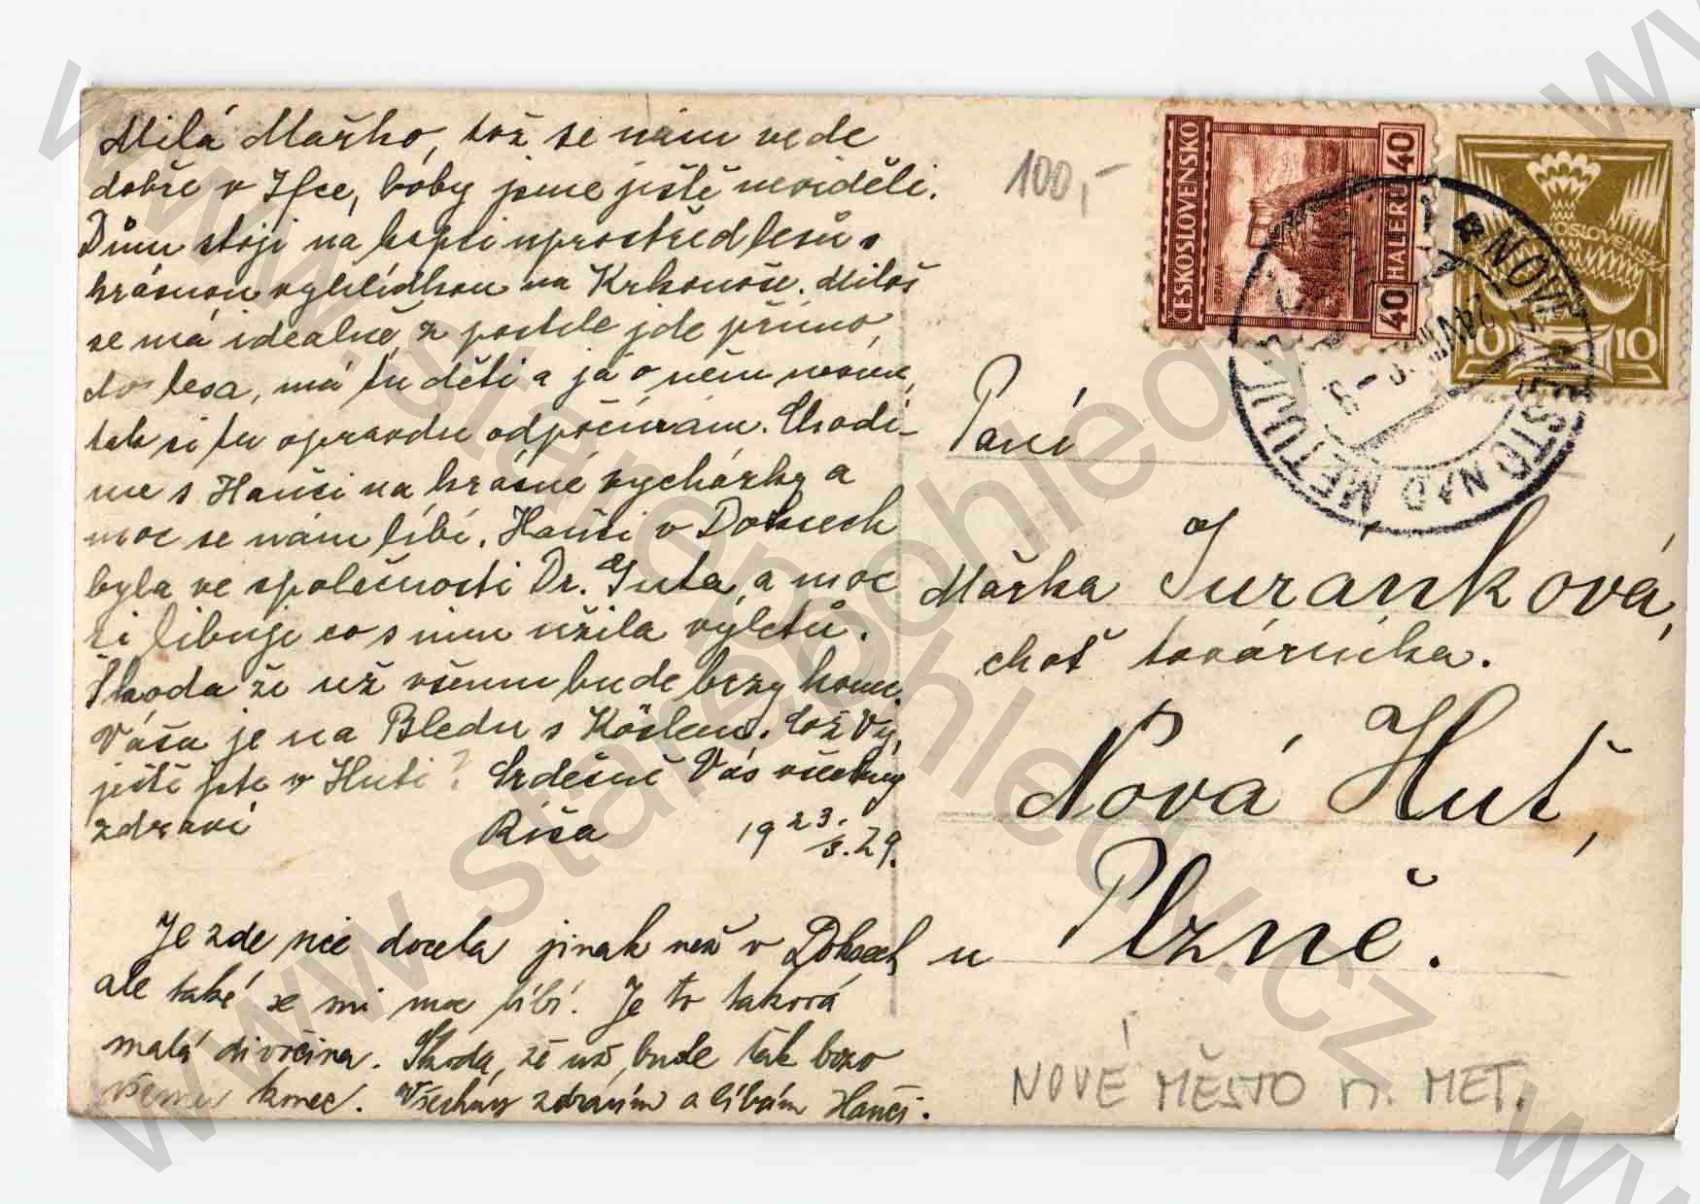 Milá Mařko, tož se nám vede
dobře v Jfce, boby jsme ještě neviděli.
Dům stojí na kopci uprostřed lesů s
krásnou vyhlídkou na Krkonoše. Miloš
se má idealně z postele jde přímo
do lesa, má tu děti a já o něm nevím,
tak si tu opravdu odpočívám. Chodí-
me s Hančí na krásné vycházky a
moc se nám líbí. Hanči v Doksech
byla ve společnosti Dr. Guta, a moc
si libuje co s ním užila výletů.
Škoda že už všemu bude brzy konec.
Váša je na Bledu s Köslem. Tož Vy
ještě jste v Huti? Srdečně Vás všechny
zdraví Ríša 19 23./8. 29.
Je zde sice docela jinak než v Doksech
ale také se mi moc líbí. Je to taková
malá divočina. Škoda, že už bude tak brzo
všemu konec. Všechny zdravím a líbám Hanči.
100,-
ČESKOSLOVENSKO
ORAVA
40 HALERU 40
10 10
NOVÉ MĚSTO NAD METUJÍ
Paní
Mařka Juránková,
choť továrníka.
Nová Huť,
u Plzně.
NOVÉ MĚSTO n. MET.
www.starepohledy.cz